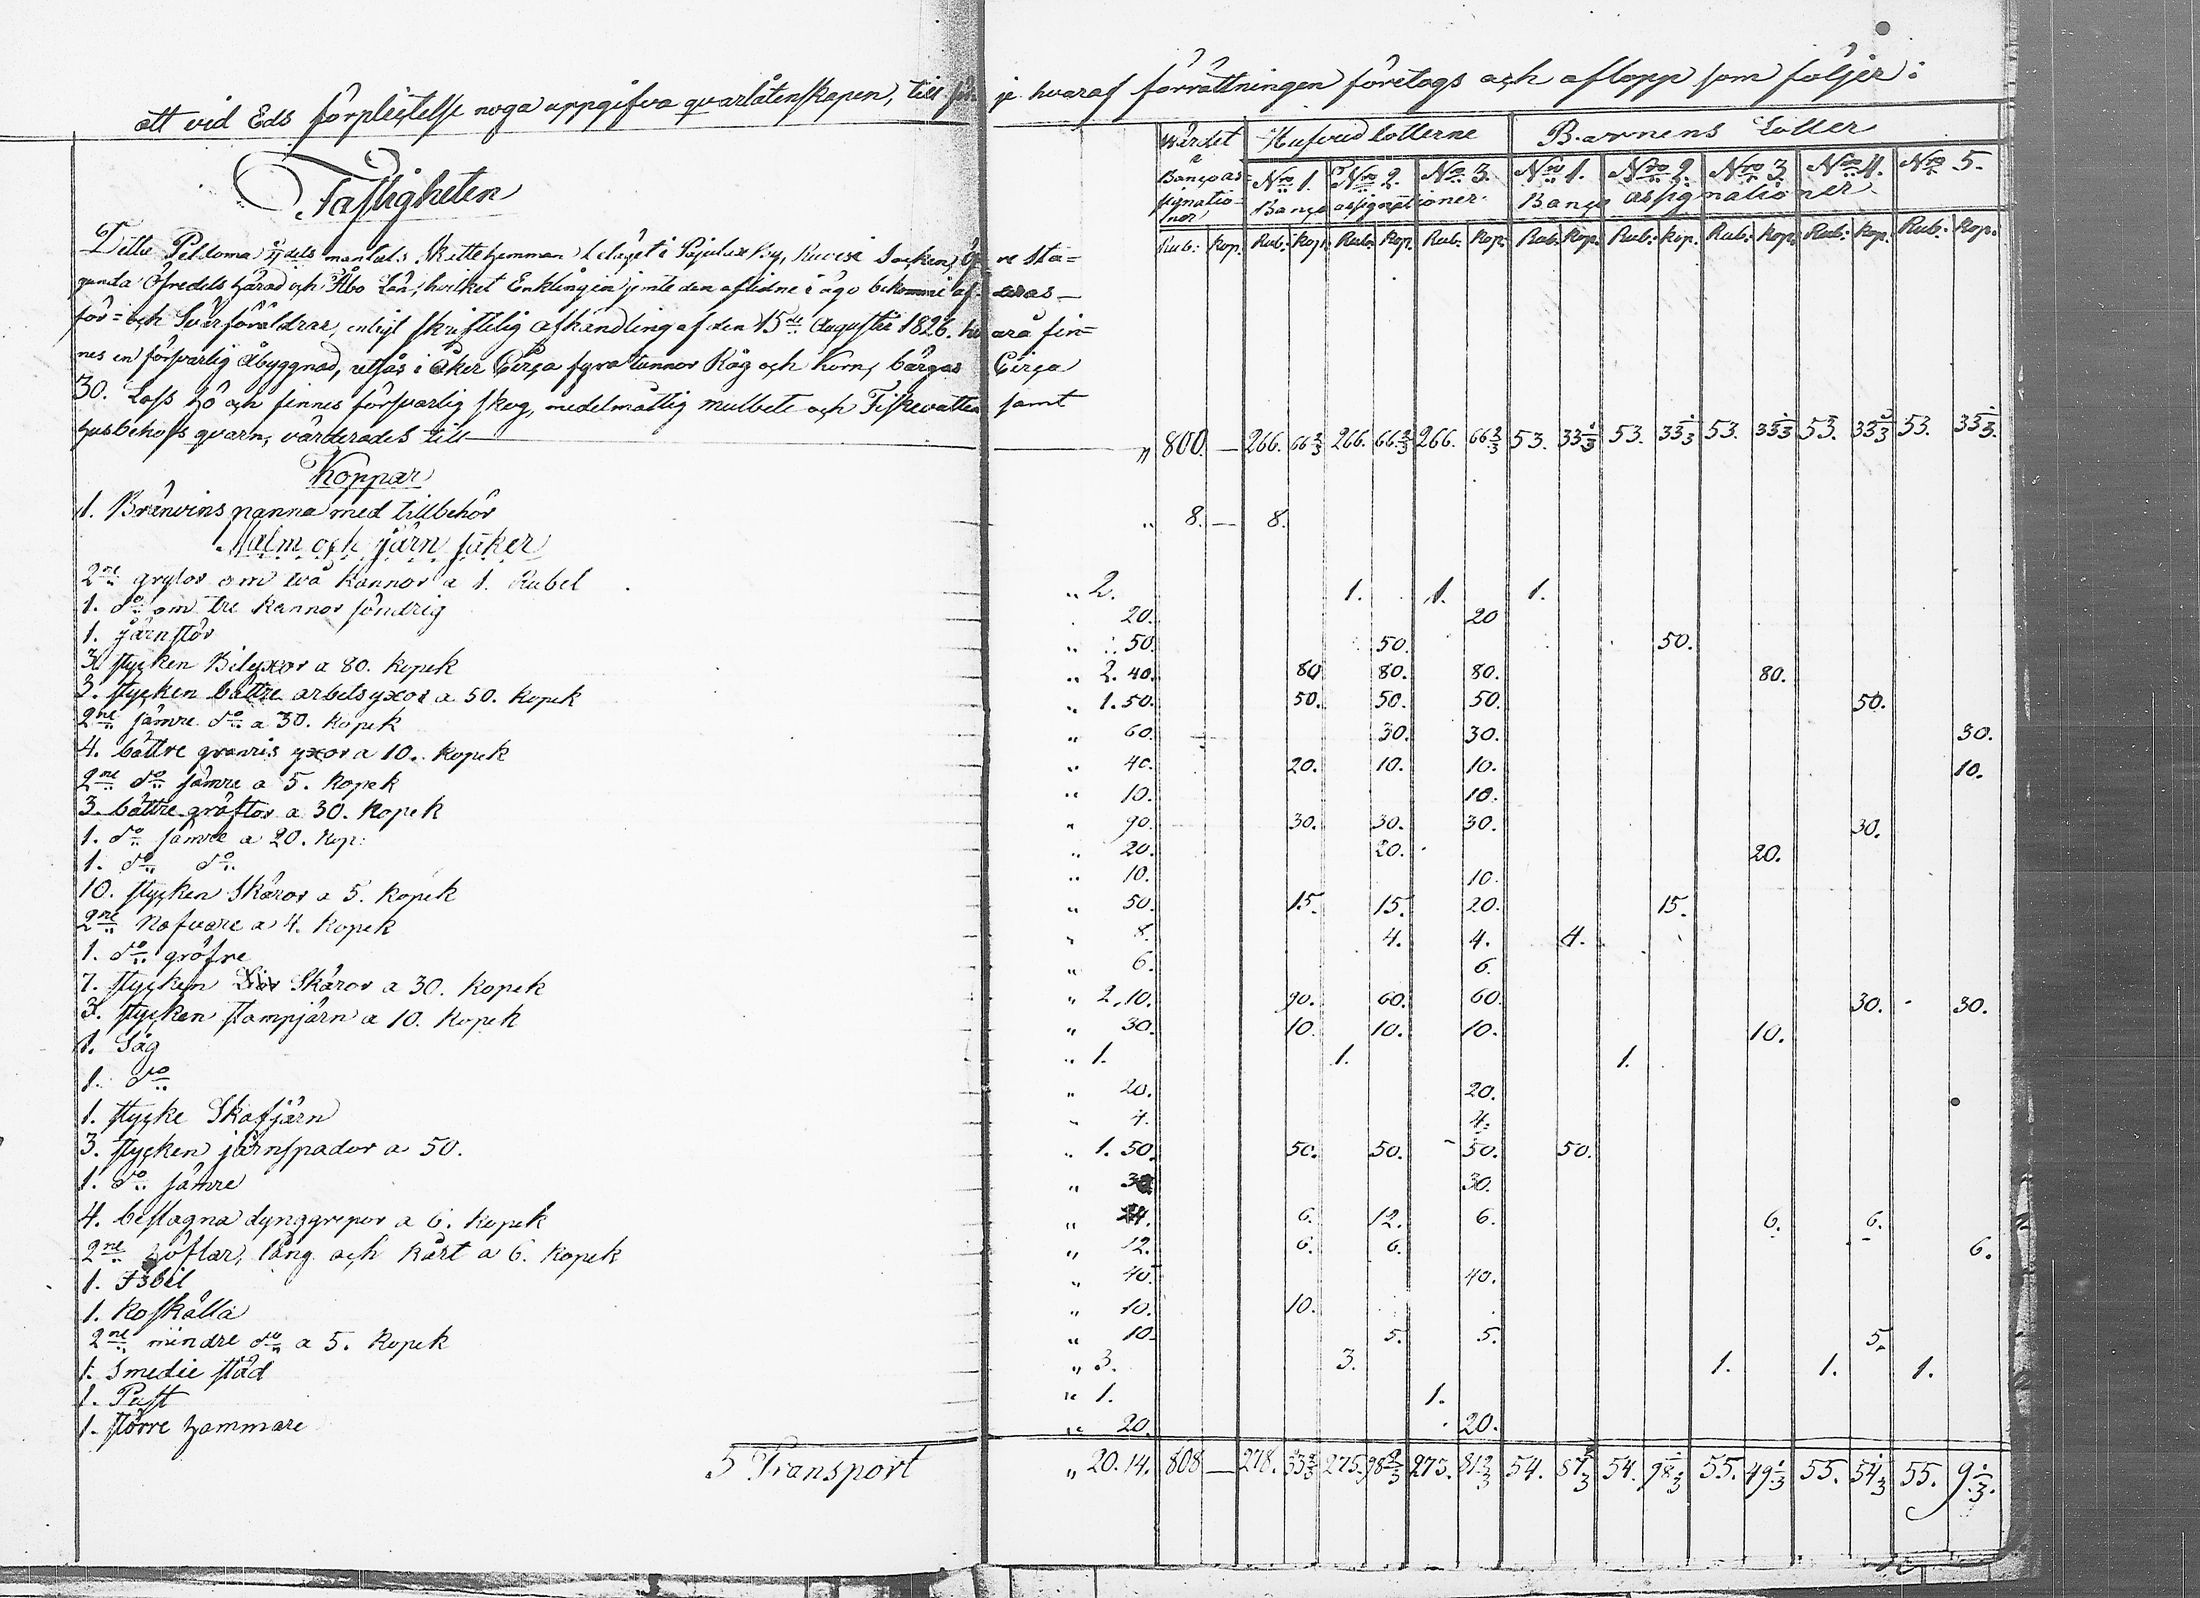 ått vid Eds förplectelse noga uppgifva qvarlåtenskapen, till
je hvaraf förrättningen företogs och aflopp som följer:
Wärdet Hufvud lotterne Barnens Lotter
å Banço assignationer Nro 1. Nro 2. Nro 3. Nro 1. Nro 2. Nro 3. Nro 4. Nro 5.
Banço assignationer. Banço assignationer
Rub: Kop. Rub: Kop. Rub: Kop. Rub: Kop. Rub: Kop. Rub: Kop. Rub: Kop. Rub: Kop. Rub: Kop.
Fastigheten
Ditto Peldoma dels mantals Skattehemman belägit i Pajula By, Socken,
Öfredels härad och Åbo Län, hvilket Enklingen jemte den aflidne i ägo bekommit af
för= och Svärföräldrar, enligt skriftelig afhandling af den 15de Augusti 1826.
nes en försvarlig Åbyggnad, utsås i åker Circa fyra tunnor Råg och Korn, bärgas Circa
30. Lass hö och finnes försvarlig skog, medelmåttig mulbete och Fiskevatten samt
husbehofs qvarn, värderades till „ 800. — 266. 66 2/3 266. 66 2/3 266. 66 2/3 53. 33 1/3 53. 33 1/3 53. 33 1/3 53. 33 1/3 53. 33 1/3.
Koppar
1. Bränvins panna med tillbehör „ 8. — 8.
Malm och järn saker
2ne grytor om två kannor a 1. Rubel „ 2. 1. 1. 1.
1. do om tre kannor söndrig 20. 20
1. Järnstör „ 50. 50. 50.
3. stycken Bilyxor a 80. Kopek „ 2. 40. 80 80. 80. 80.
3. stycken bättre arbetsyxor a 50. Kopek „ 1. 50. 50. 50. 50. 50.
2ne sämre do a 30. Kopek „ 60. 30. 30. 30.
4. bättre granris yxor a 10. Kopek „ 40. 20. 10. 10. 10.
2ne do sämre a 5. Kopek „ 10. 10.
3. bättre gräftor a 30. Kopek „ 90. 30. 30. 30. 30.
1. do sämre a 20. Kop: „ 20. 20. 20.
1. do do „ 10. 10.
10. stycken Skäror a 5. Kopek „ 50. 15. 15. 20. 15.
2ne Nafvare a 4. Kopek „ 8. 4. 4. 4.
1. do gröfre „ 6. 6.
7. stycken Skäror a 30. Kopek „ 2. 10. 90. 60. 60. 30. 30.
3. stycken stampjärn a 10. Kopek „ 30. 10. 10. 10. 10.
1. Såg „ 1. 1. 1.
1. do „ 20. 20.
1. stycke Skafjärn „ 4. 4.
3. stycken järnspador a 50. „ 1. 50. 50. 50. 50. 50.
1. do sämre „ 30 30.
4. beslagna dynggrepor a 6. Kopek „ 24. 6. 12. 6. 6. 6.
2ne höflar, lång och kårt a 6. Kopek „ 12. 6. 6. 6.
1. Isbil „ 40. 40.
1. Koskälla „ 10. 10.
2ne mindre do a 5. Kopek „ 10. 5. 5. 5.
1. Smedie städ „ 3. 3. 1. 1. 1.
1. Püst „ 1. 1.
1. större hammare „ 20. 20.
Transport „ 20. 14. 808 — 278. 33 2/3 275. 98 2/3 273. 81 2/3 54. 87 1/3 54. 98 1/3 55. 49 1/3 55. 54 1/3 55. 9 1/3.